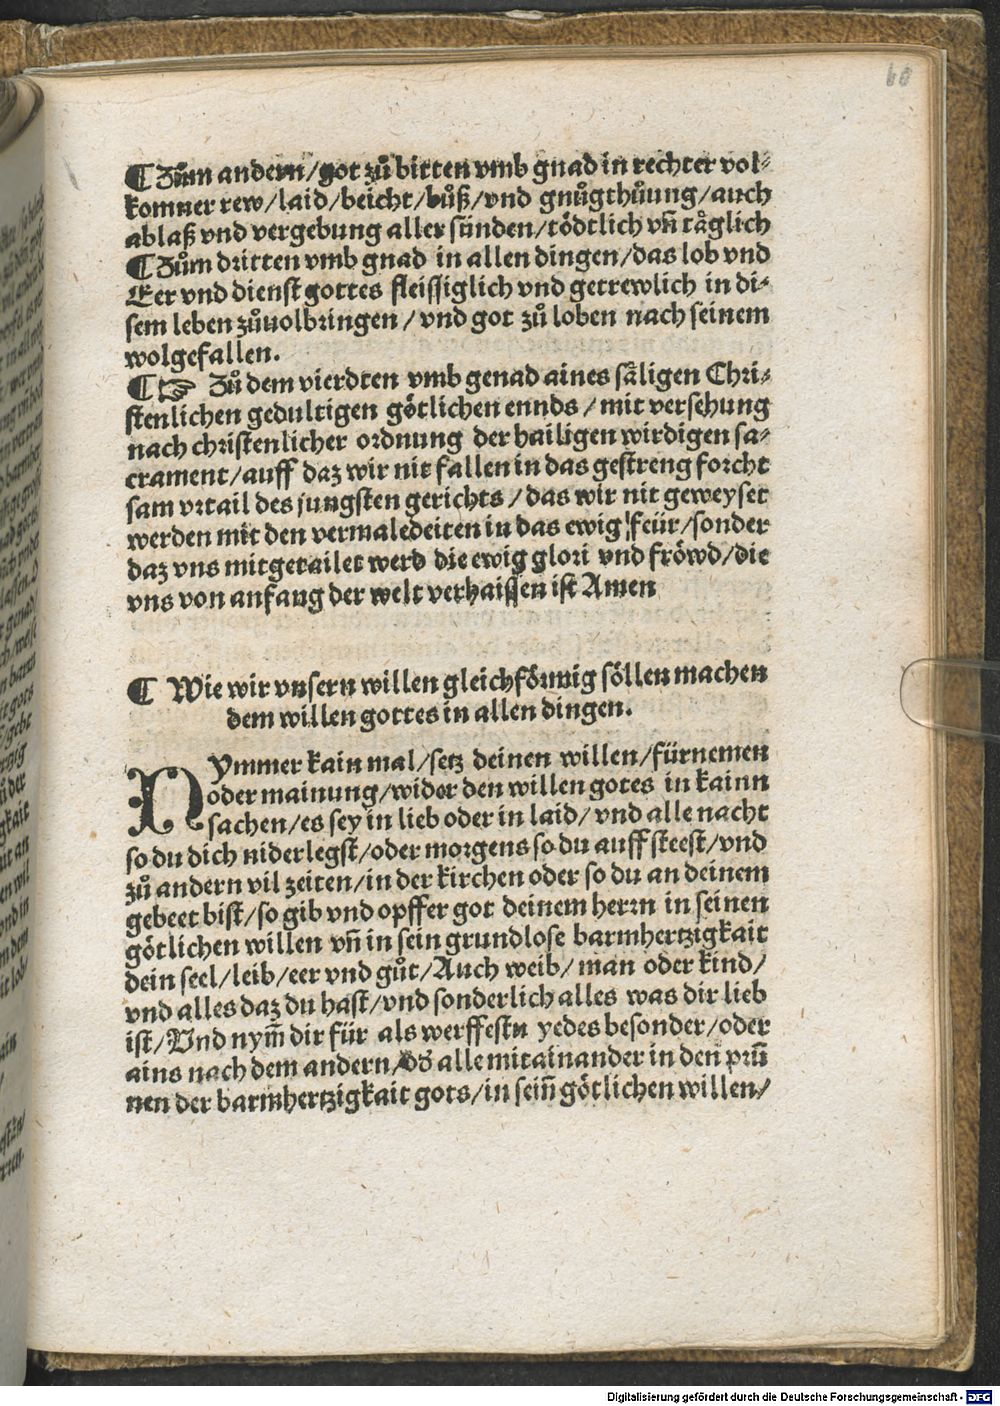 60
¶ Zům andern/got zů bitten vmb gnad in rechter vol⸗
komner rew/laid/beicht/bůß/vnd gnůgthůung/auch
ablaß vnd vergebung aller sünden/tödtlich vñ tåglich
¶ Zům dritten vmb gnad in allen dingen/das lob vnd
Eer vnd dienst gottes fleissiglich vnd getrewlich in di⸗
sem leben zůuolbringen/vnd got zů loben nach seinem
wolgefallen.
¶ ☞ Zů dem vierdten vmb genad aines såligen Chri⸗
stenlichen gedultigen götlichen ennds/mit versehung
nach christenlicher ordnung der hailigen wirdigen sa⸗
crament/auff daz wir nit fallen in das gestreng forcht
sam vrtail des jungsten gerichts/das wir nit geweyset
werden mit den vermaledeiten in das ewig feür/sonder
daz vns mitgetailet werd die ewig glori vnd fröwd/die
vns von anfang der welt verhaissen ist Amen
¶ Wie wir vnsern willen gleichförmig söllen machen
dem willen gottes in allen dingen.
NYmmer kain mal/setz deinen willen/fürnemen
oder mainung/wider den willen gotes in kainn
sachen/es sey in lieb oder in laid/vnd alle nacht
so du dich niderlegst/oder morgens so du auff steest/vnd
zů andern vil zeiten/in der kirchen oder so du an deinem
gebeet bist/so gib vnd opffer got deinem herrn in seinen
götlichen willen vñ in sein grundlose barmhertzigkait
dein seel/leib/eer vnd gůt/Auch weib/man oder kind/
vnd alles daz du hast/vnd sonderlich alles was dir lieb
ist/Vnd nym̃ dir für als werffestu yedes besonder/oder
ains nach dem andern/od' alle mitainander in den prũ
nen der barmhertzigkait gots/in sein̄ götlichen willen/
Digitalisierung gefördert durch die Deutsche Forschungsgemeinschaft - DFG